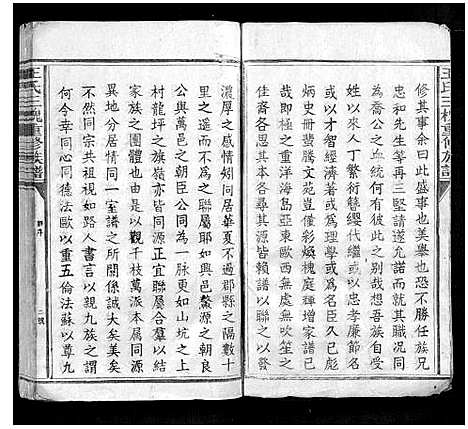 王氏三槐重修族譜
修其事余曰此盛事也美舉也恐不勝任族兄
忠和先生等再三堅請遂允諾而就其職況同
為喬公之裔天然有何彼此哉想吾族自受
姓以來人丁繁衍簪纓代繼或以忠孝廉節名
或以理學經濟著或以才彰而顯其聲
炳史冊蜚騰文苑豈僅彩煥槐庭輝增禪
哉即極之重洋海島亞東歐西無處無吹笙之
佳裔諸君各尋其源皆頗得聯之以譜以發
濃厚之感情矧同居華夏不過郡縣之隔數十
里之遥而不為之聯屬耶如興邑鰲源之朝良
公與萬邑之朝臣公同為一脉更如山坑之上
村龍坪之族嶺亦皆同源正宜聯屬合羣以成
家族之團體也由是以觀千枝萬派本屬同源
異地分居情同一室譜之所關係誠大矣美矣
不然同宗共祖視如路人書言以親九族之謂
何今幸同心同德法歐以重五倫法蘇以尊九
王氏三槐重修族譜
二